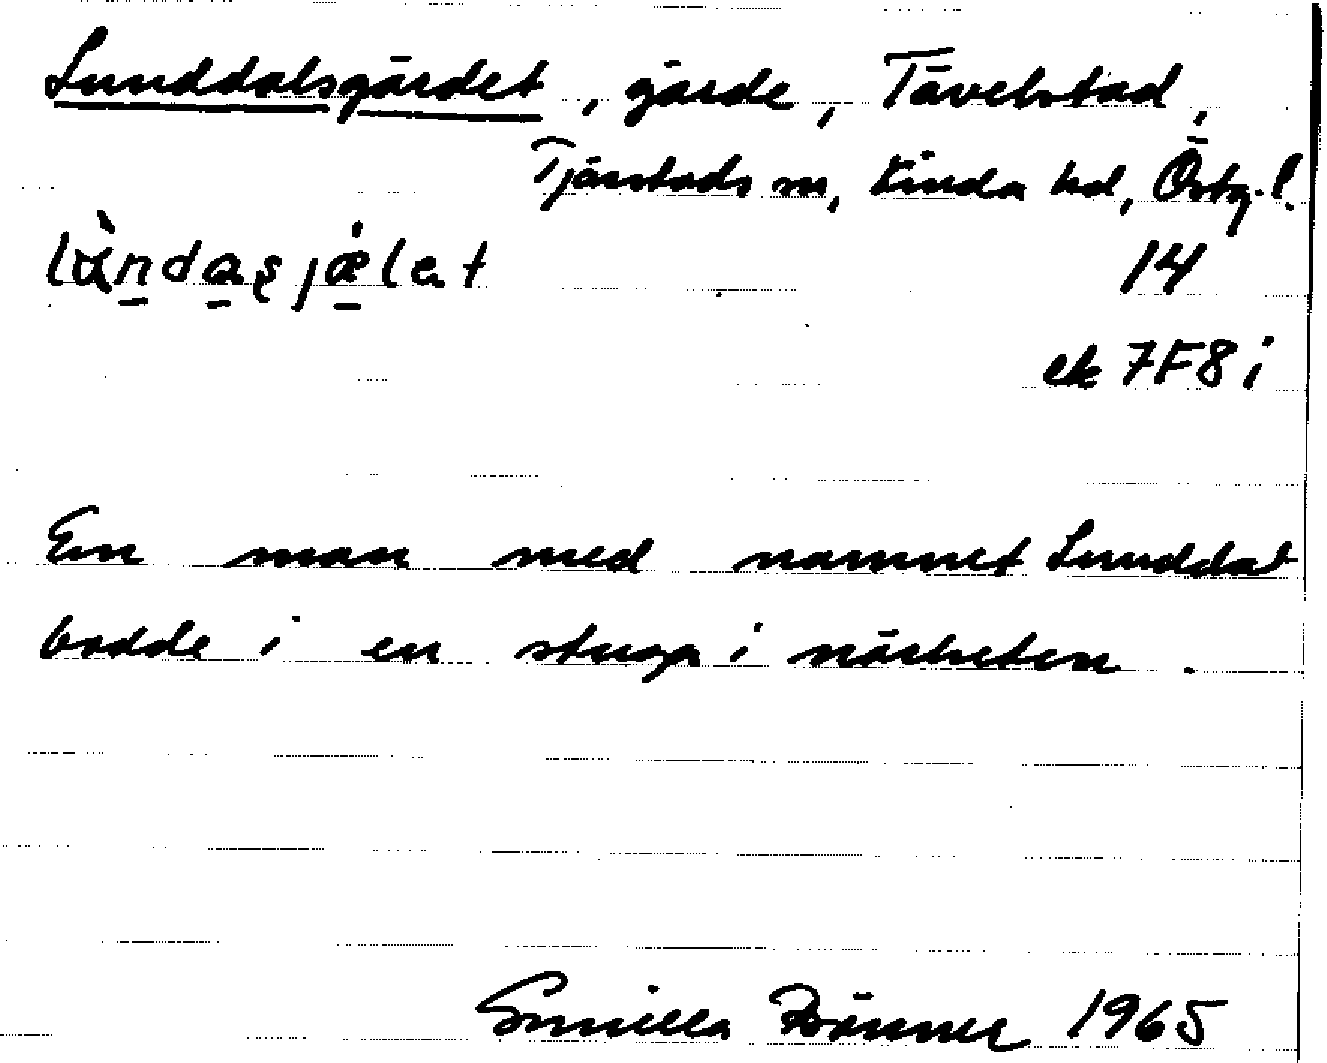 Lunddalsgärdet, gärde, Tävelstad,
Tjärstads sn, Kinda hd, Östg. l.
14
ek 7F8i
En man med namnet Lunddal
bodde i en stuga i närheten.
Gunilla 1965